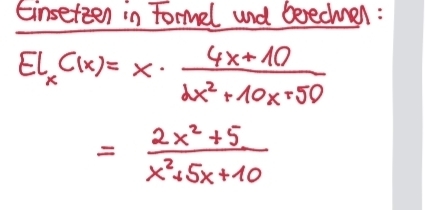 Einsetzen in Formel und berechnen:
El_x C(x) = x · (4x+10)/(2x²+10x+50)
= (2x²+5)/(x²+5x+10)